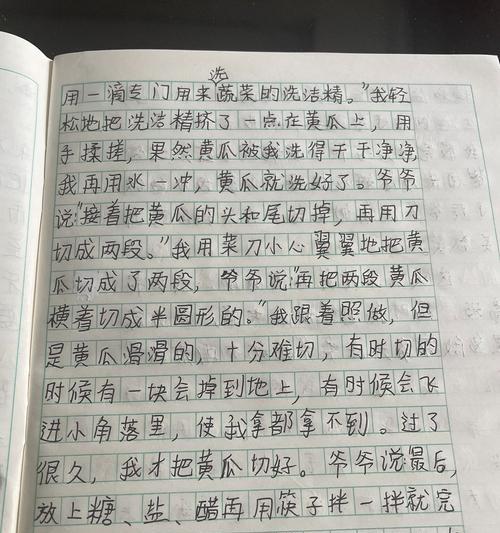 洗
用一滴专门用来蔬菜的洗洁精。”我轻
松地把洗洁精挤了一点在黄瓜上，用
手揉搓，果然黄瓜被我洗得干干净净，
我再用水一冲，黄瓜就洗好了。爷爷
说“接着把黄瓜的头和尾切掉，再用刀
切成两段。”我用菜刀小心翼翼地把黄
瓜切成了两段，爷爷说“再把两段黄瓜
横着切成半圆形的。”我跟着照做，但
是黄瓜滑滑的，十分难切，有时切的
时候有一块会掉到地上，有时候会飞
进小角落里，使我拿都拿不到。过了
很久，我才把黄瓜切好。爷爷说最后，
放上糖、盐、醋再用筷子拌一拌就完